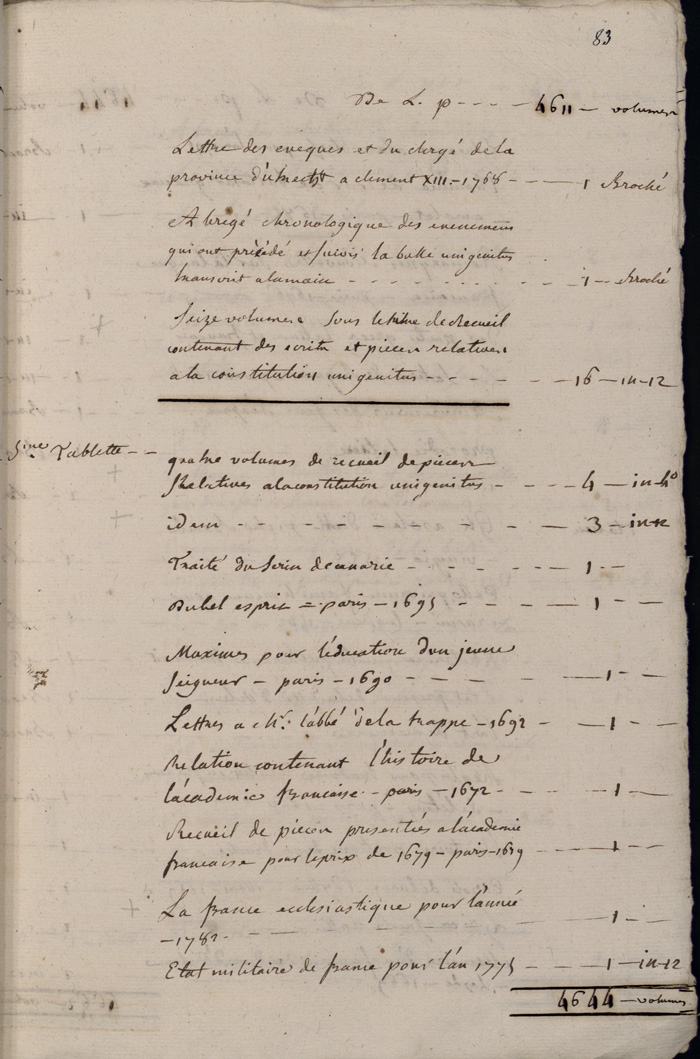 83
De L. p - - - - 4611 - volumes
Lettre des eveques et du clergé de la
province d'utrecht a clement XIII. - 1768 - - - 1 Broché
Abregé chronologique des evenemens
qui ont précédé et suivis la bulle unigenitus
transcrit a la main - - - - - - - - 1 - Broché
Seize volumes sous le titre de Recueil
contenant des ecrits et pieces relatives
a la constitution unigenitus - - - - - - 16 - in-12
5me. Tablette - - quatre volumes de recueil de pieces
Relatives a la constitution unigenitus - - - - 4 - in-4°
idem - - - - - - - - - 3 - in-12
Traité du Serin de canarie - - - - - 1 -
Du bel esprit = paris - 1695 - - - - 1 - -
Maximes pour l'éducation d'un jeune
Seigneur - paris - 1690 - - - - - 1 - -
Lettres a Mr. l'abbé de la trappe - 1692 - - 1 - -
Relation contenant l'histoire de
l'academie francaise - paris - 1672 - - - 1 - -
Recueil de pieces presentées a l'academie
francaise pour le prix de 1679 - paris - 1679 - - 1 - -
La france ecclesiastique pour l'année
- 1782 - - - - - - - 1 - -
Etat militaire de france pour l'an 1775 - - - 1 - in-12
4644 - volumes